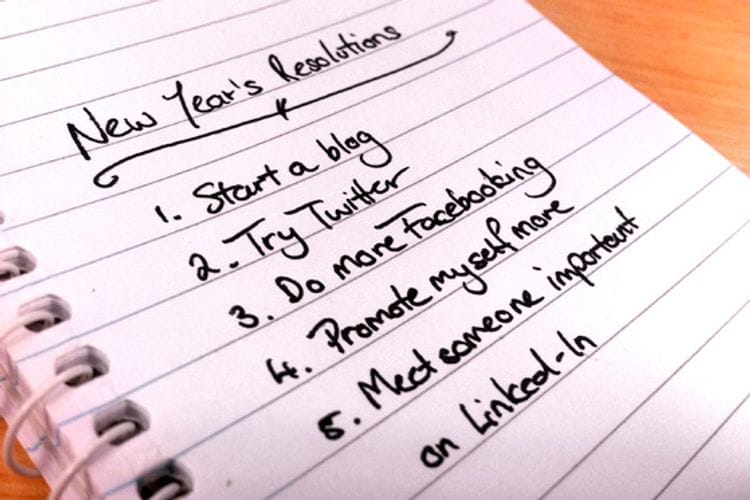 New Year's Resolutions
1. Start a blog
2. Try Twitter
3. Do more Facebooking
4. Promote myself more
5. Meet someone important
on Linked-In